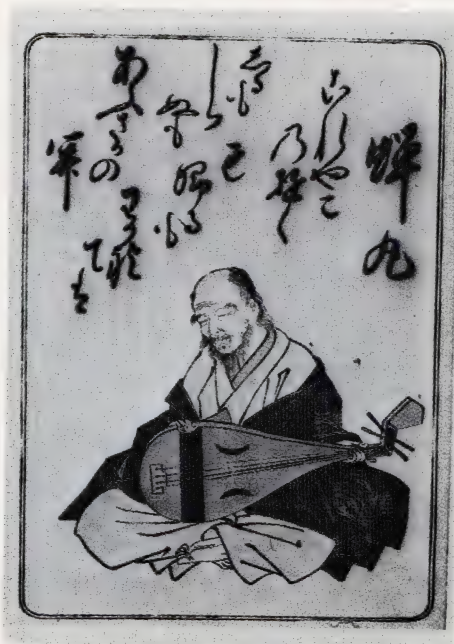 蝉丸
これやこ
乃行く
も
帰るも
わかれ
ては
しるも
しら
ぬも
あふさかの
関